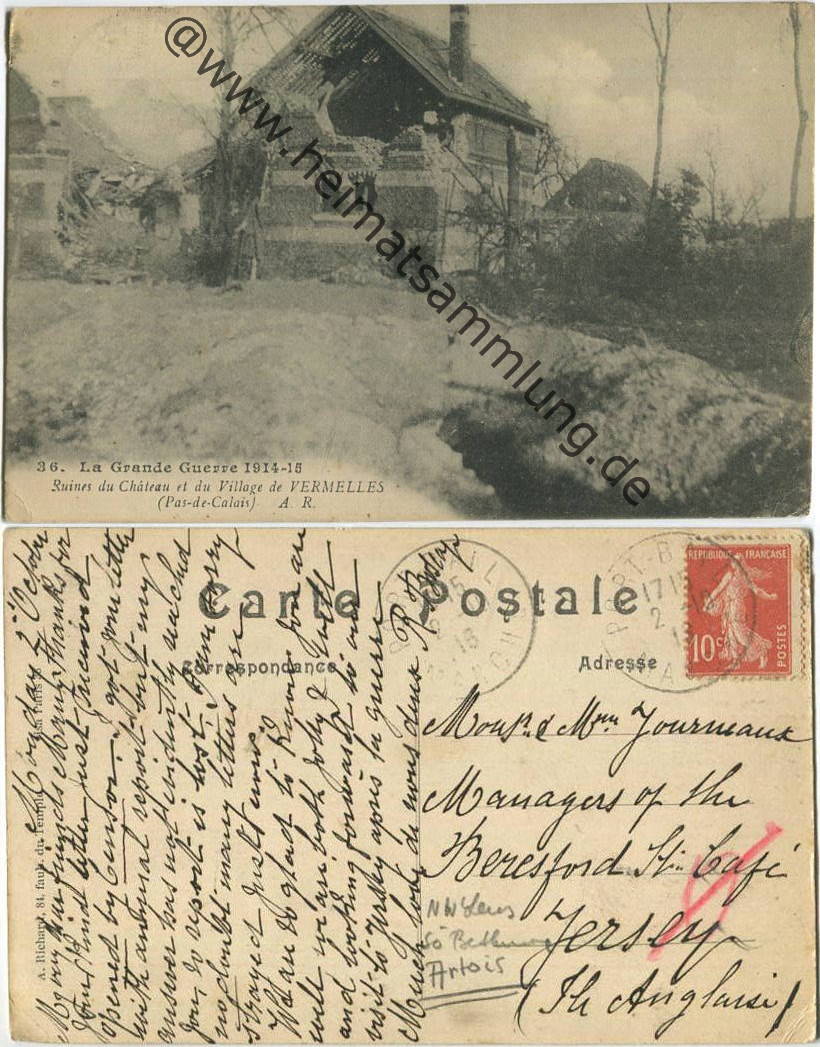 @www.heimatsammlung.de
36. La Grande Guerre 1914-15
Ruines du Château et du Village de VERMELLES
(Pas-de-Calais) A. R.
Carte Postale
Correspondance
Adresse
REPUBLIQUE FRANÇAISE
10c
A. Richard, 84, faub. du Temple
Monday 2 October
My very dear friends Many thanks for
Your kind letter just received
opened by censor. I got your letter
with annual report but my
answer has not evidently reached
you, so report is lost. I am sorry
no doubt many letters are
strayed just now
We are so glad to know you are
well we are both jolly
and looking forward to our
visit to Jersey après la guerre
Much love de nous deux
Monsr. & Mme Journeaux
Managers of the
Beresford St. Café
Jersey
(Ile Anglaise)
NW Lens
Artois